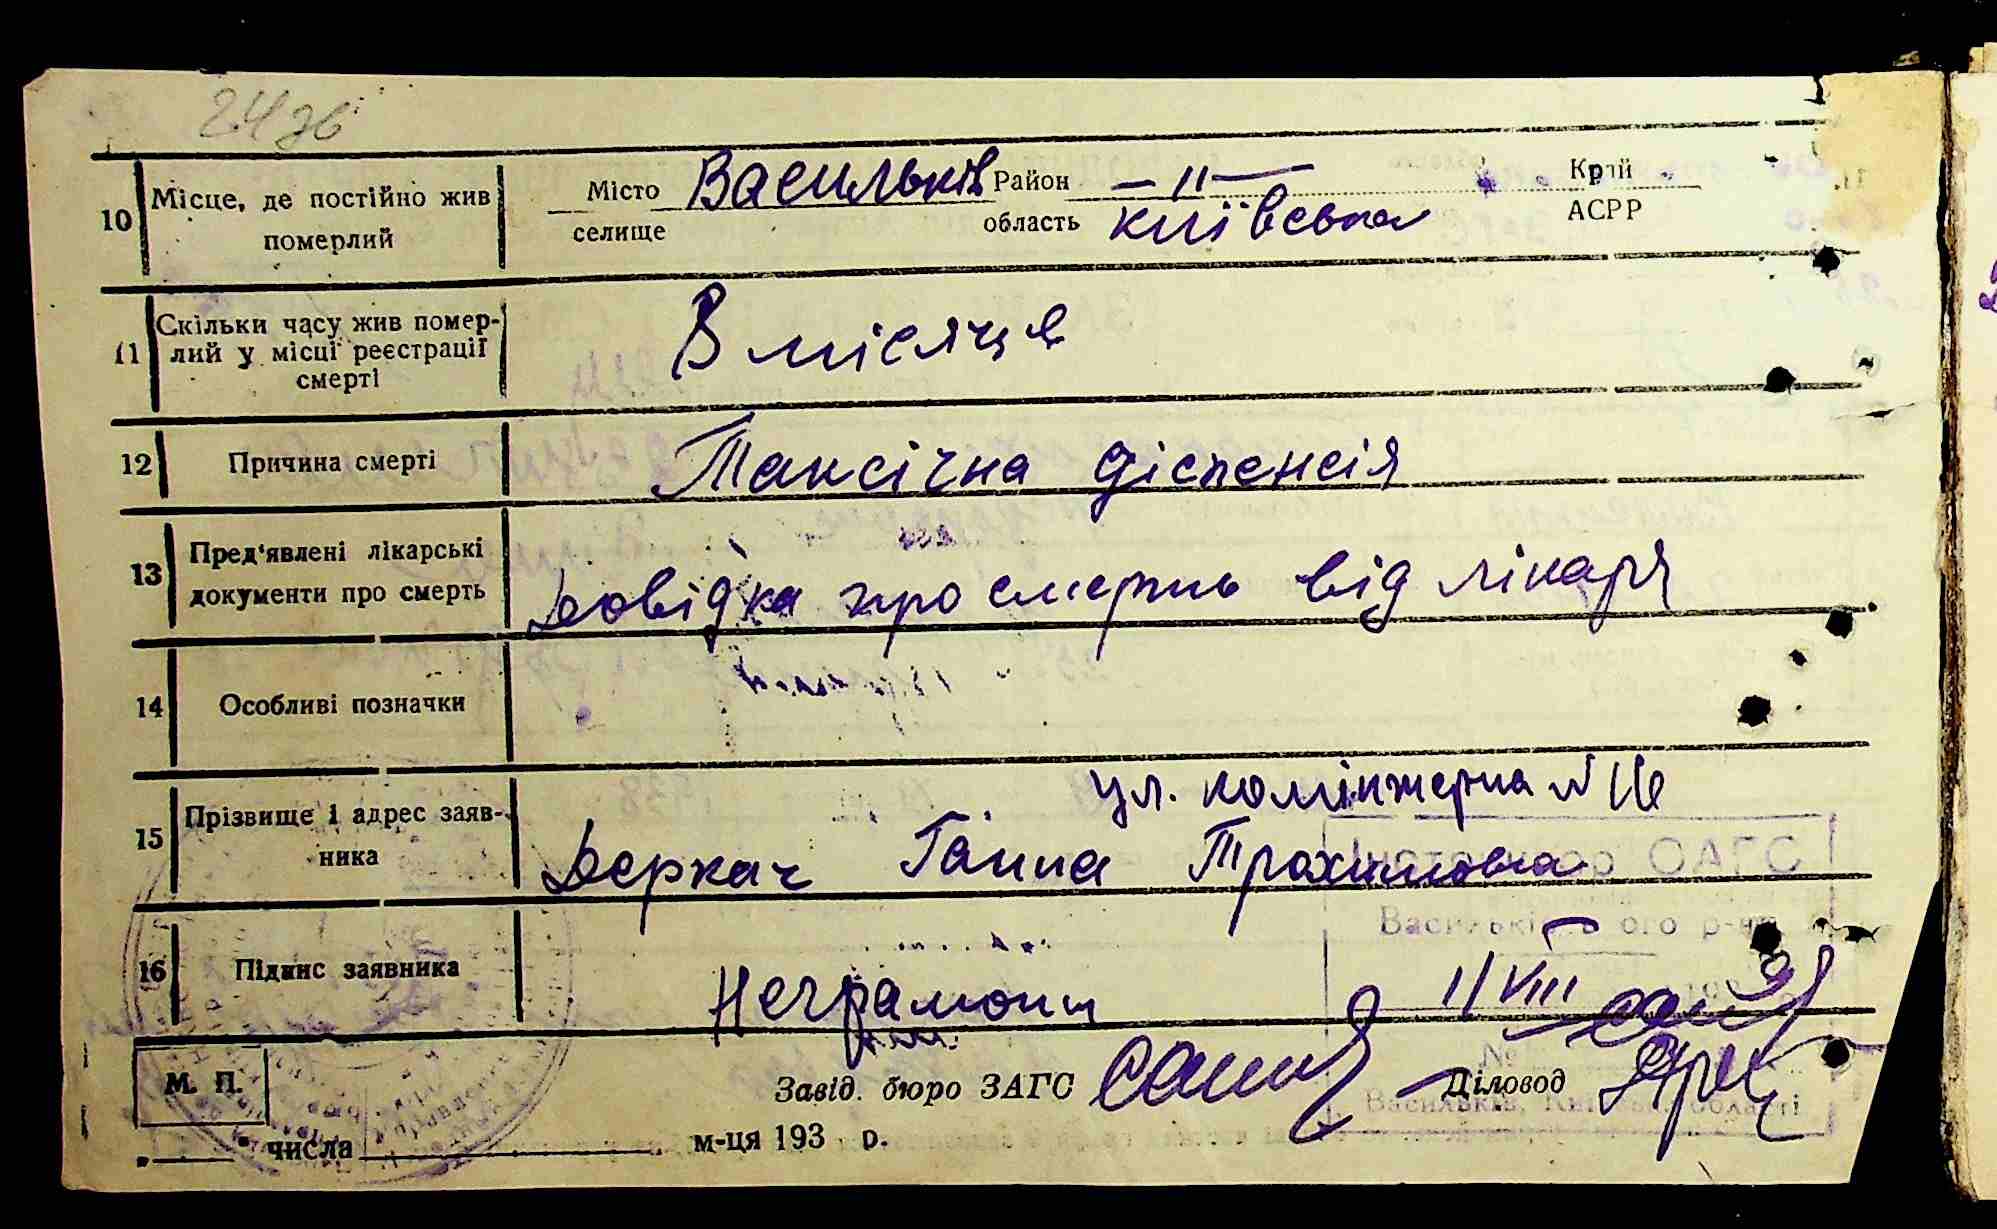 24зв
10 Місце, де постійно жив померлий Місто Васильків Район —"— Край
селище область київська АСРР
11 Скільки часу жив помер-
лий у місці реєстрації
смерті
3 місяця
12 Причина смерті Таксічна діспенсія
13 Пред'явлені лікарські
документи про смерть
Довідка про смерть від лікаря
14 Особливі позначки
15 Прізвище і адрес заяв-
ника
ул. комінтерна № 116
Деркач Ганна Трохимовна
Інспектор ОАГС
Васильківського р-ну
16 Підпис заявника Неграмотн
11/VIII
М. П. Завід. бюро ЗАГС Діловод
Васильків, Київськ. області
" числа м-ця 193 р.